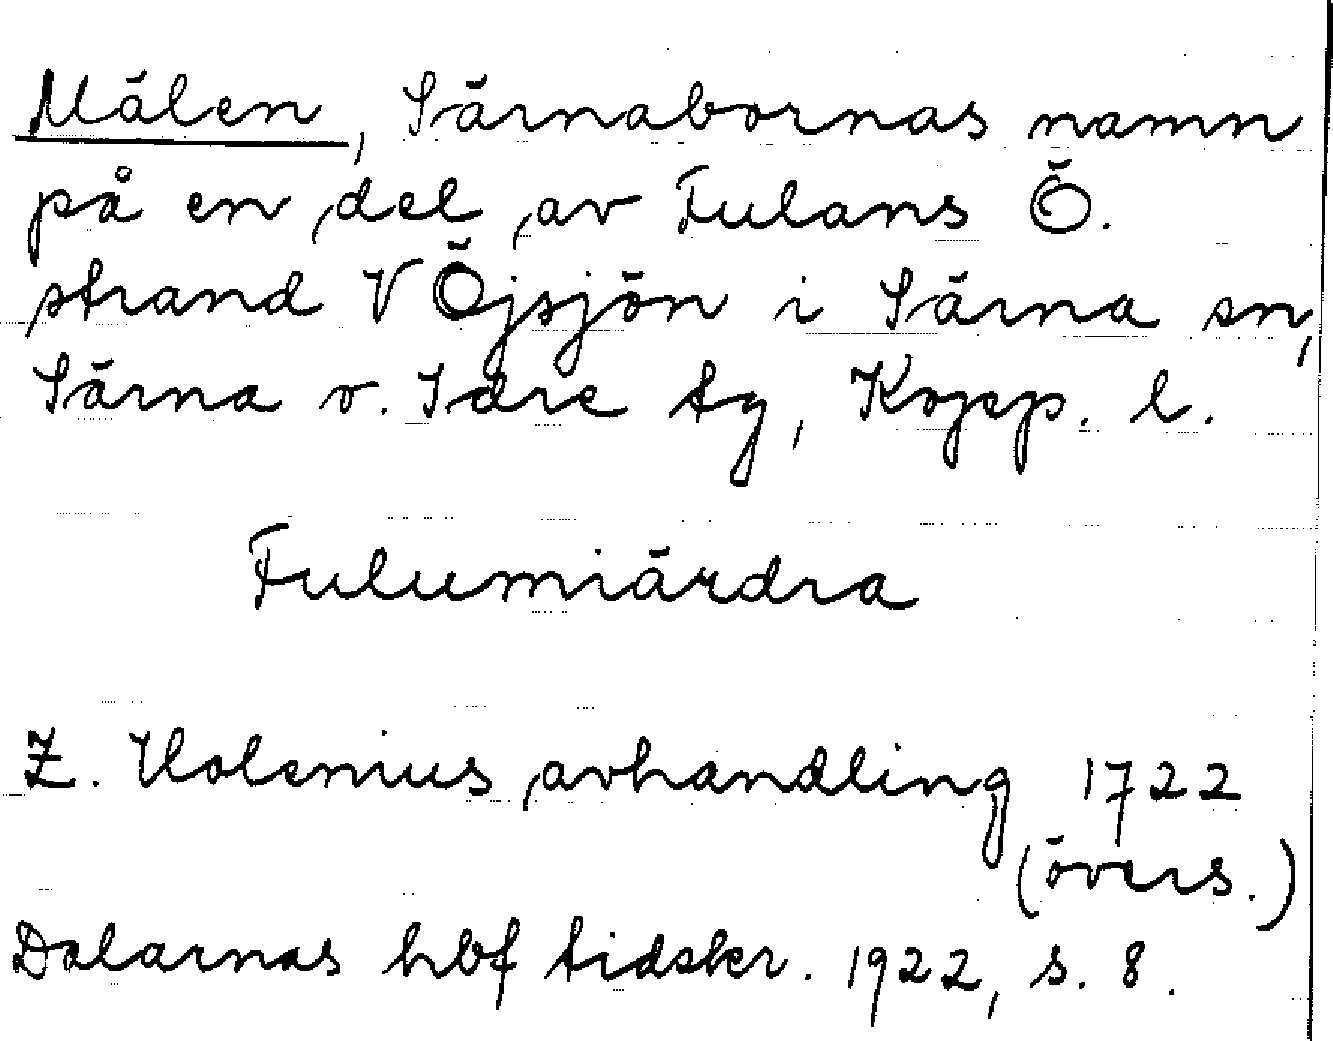 Mälen, Särnabornas namn
på en del av Fulans Ö.
strand V Öjsjön i Särna sn,
Särna o. Idre tg, Kopp. l.
Fulumiärdra
Z. Holenius avhandling 1722
(övers.)
Dalarnas hbf tidskr. 1922, s. 8.